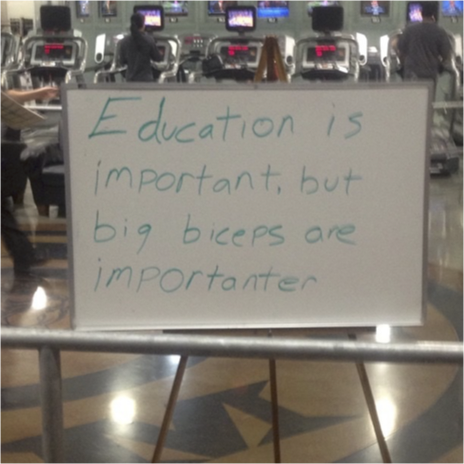 Education is
important, but
big biceps are
importanter